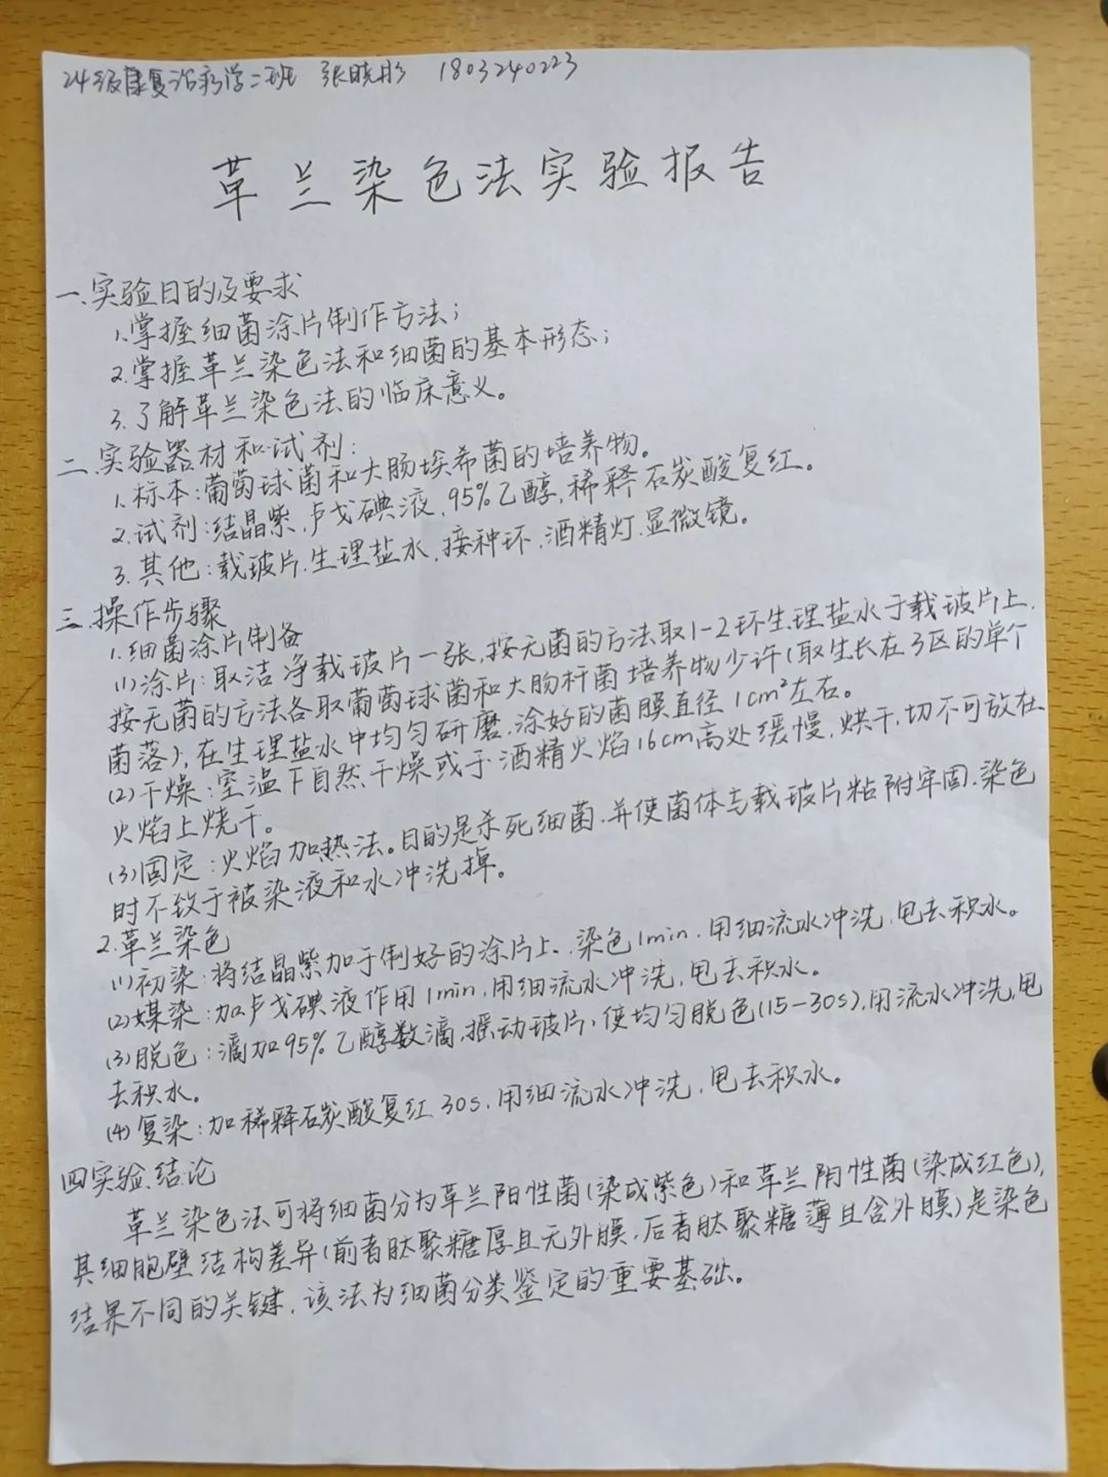 24级康复治疗学二班 张晓彤 1803240223
革兰染色法实验报告
一、实验目的及要求
1.掌握细菌涂片制作方法；
2.掌握革兰染色法和细菌的基本形态；
3.了解革兰染色法的临床意义。
二、实验器材和试剂：
1.标本：葡萄球菌和大肠埃希菌的培养物。
2.试剂：结晶紫、卢戈碘液、95%乙醇、稀释石炭酸复红。
3.其他：载玻片、生理盐水、接种环、酒精灯、显微镜。
三、操作步骤
1.细菌涂片制备
(1)涂片：取洁净载玻片一张，按无菌的方法取1-2环生理盐水于载玻片上，
按无菌的方法各取葡萄球菌和大肠杆菌培养物少许(取生长在3区的单个
菌落)，在生理盐水中均匀研磨，涂好的菌膜直径1cm²左右。
(2)干燥：室温下自然干燥或于酒精火焰16cm高处缓慢，烘干，切不可放在
火焰上烧干。
(3)固定：火焰加热法。目的是杀死细菌，并使菌体与载玻片粘附牢固，染色
时不致于被染液和水冲洗掉。
2.革兰染色
(1)初染：将结晶紫加于制好的涂片上，染色1min，用细流水冲洗，甩去积水。
(2)媒染：加卢戈碘液作用1min，用细流水冲洗，甩去积水。
(3)脱色：滴加95%乙醇数滴，摇动玻片，使均匀脱色(15-30s)，用流水冲洗，甩
去积水。
(4)复染：加稀释石炭酸复红30s，用细流水冲洗，甩去积水。
四实验结论
革兰染色法可将细菌分为革兰阳性菌(染成紫色)和革兰阴性菌(染成红色)，
其细胞壁结构差异(前者肽聚糖厚且无外膜，后者肽聚糖薄且含外膜)是染色
结果不同的关键，该法为细菌分类鉴定的重要基础。